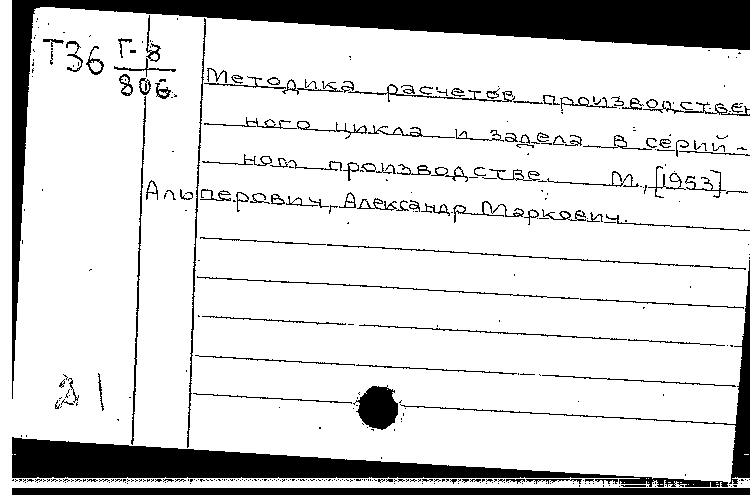 Т36 Г-8
806
Методика расчетов производствен
ного цикла и задела в серий-
ном производстве. М., [1953].
Альперович, Александр Маркович.
21